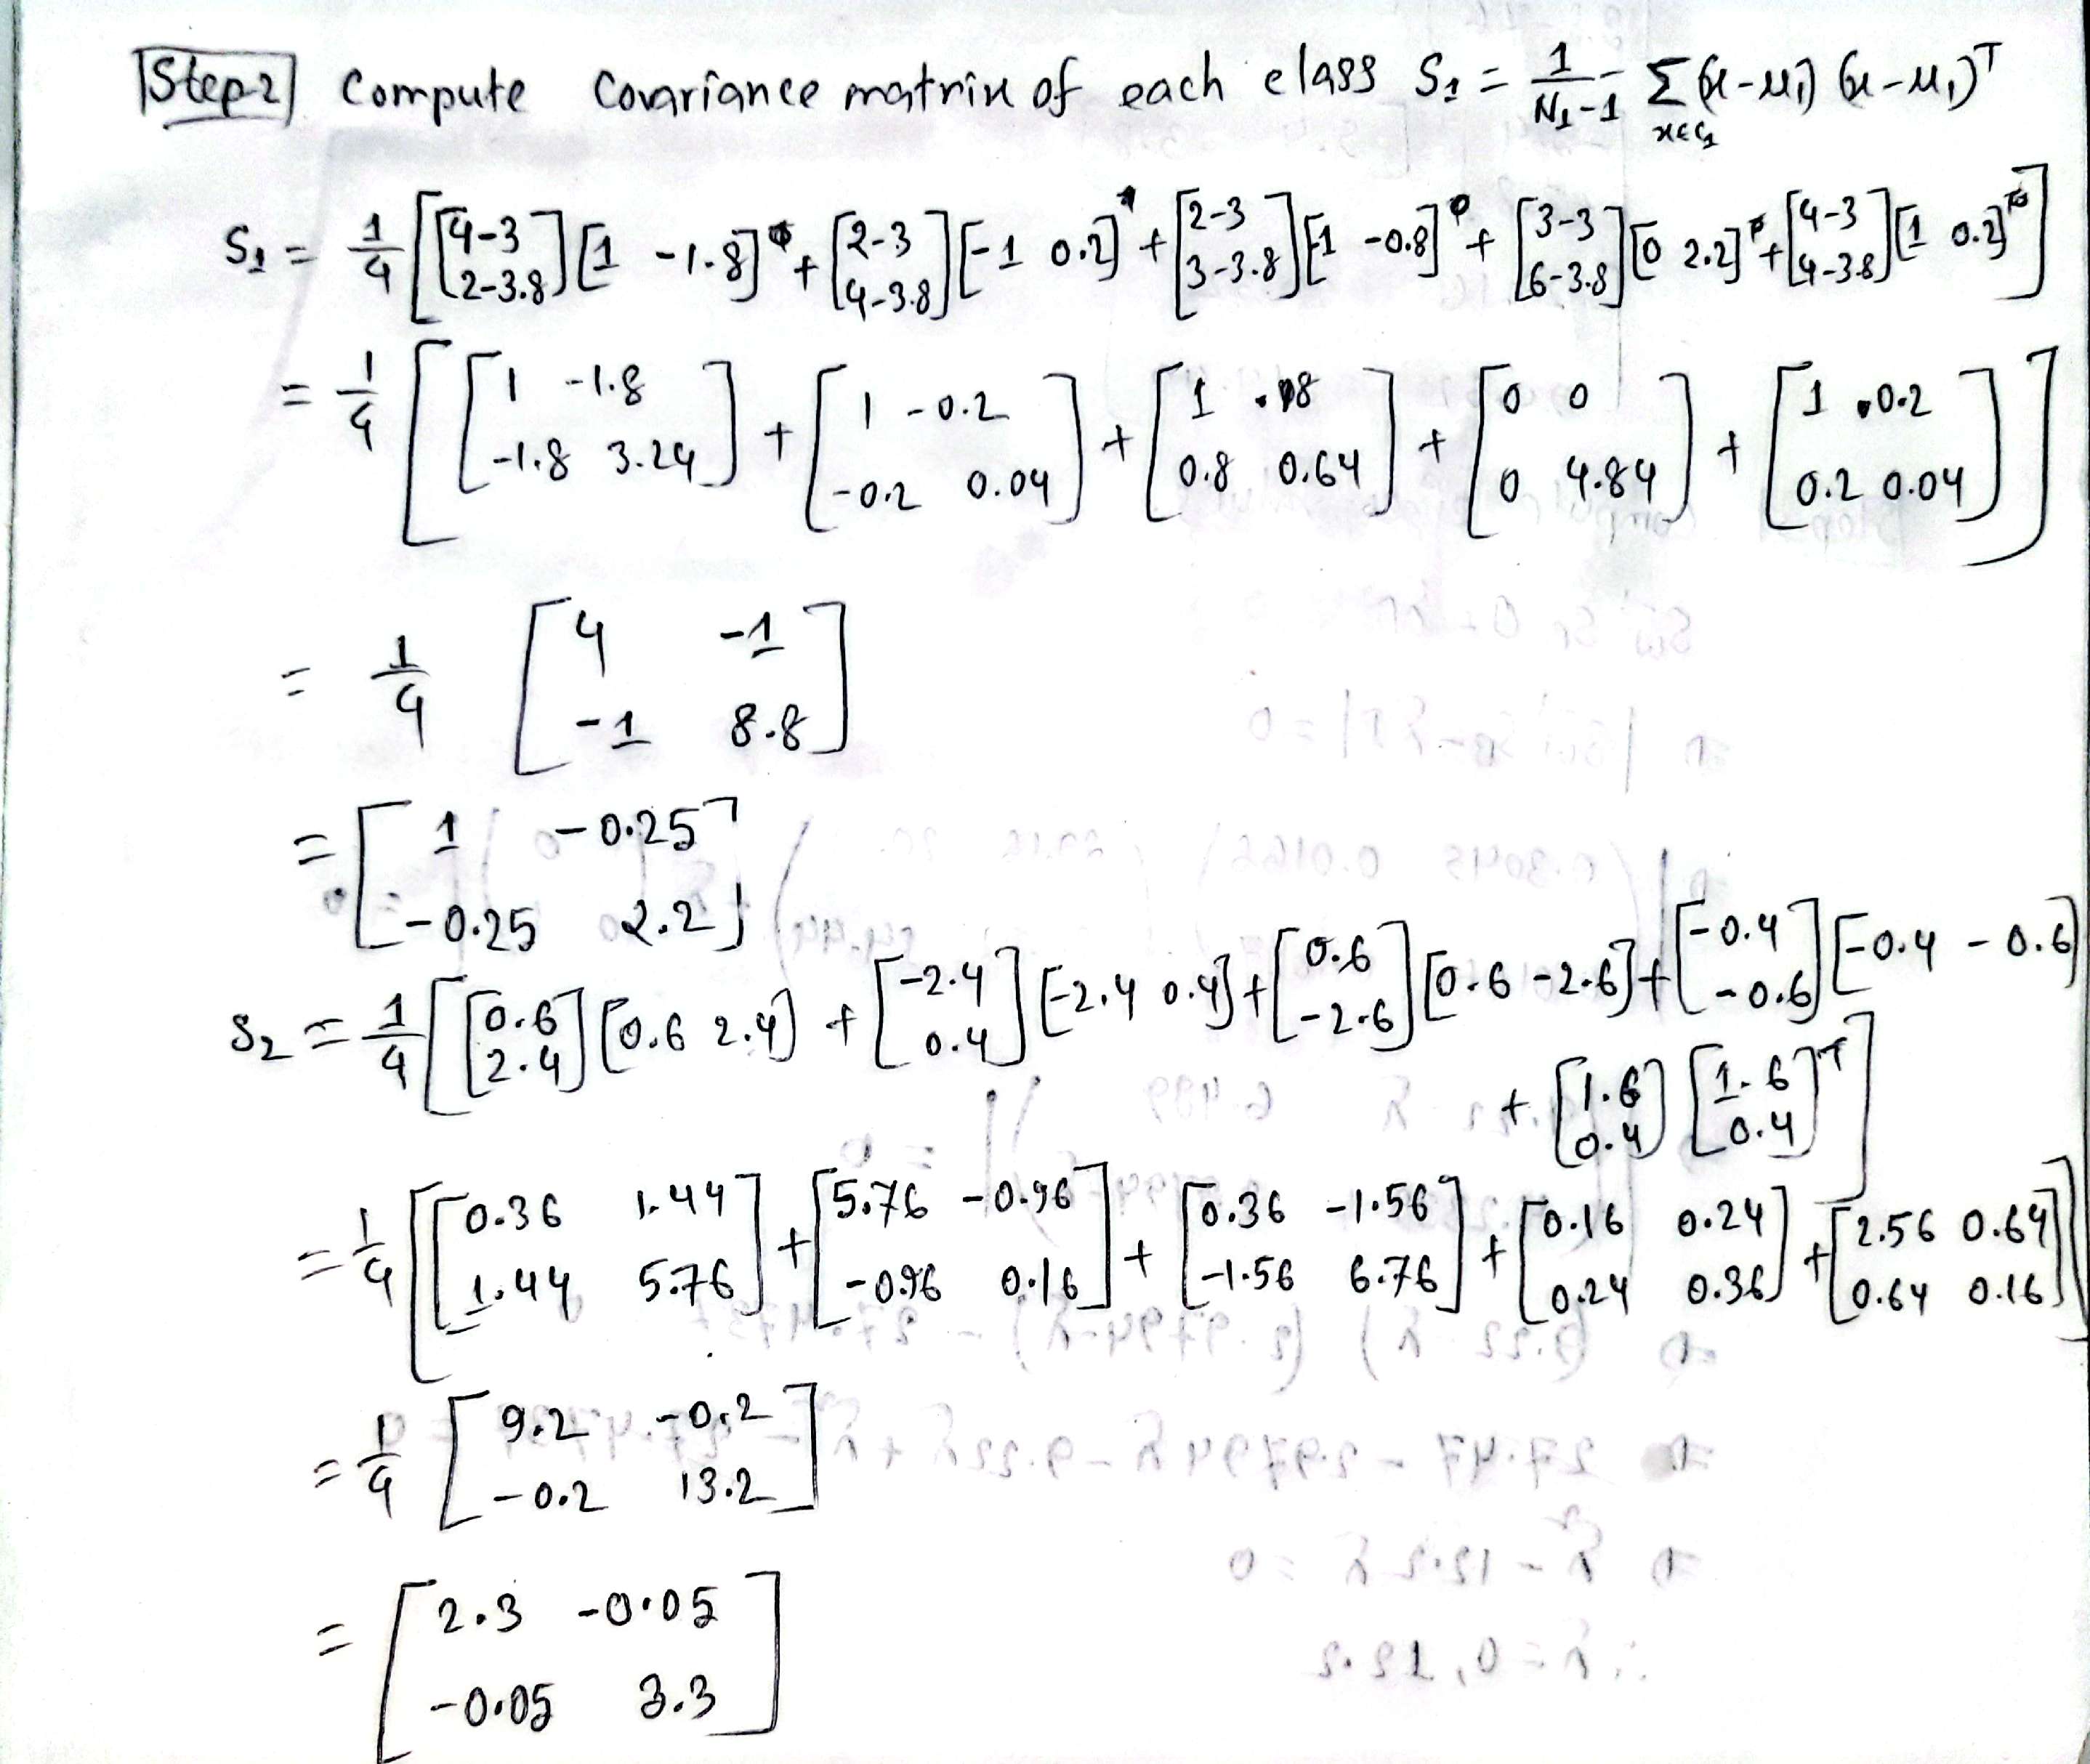 Step-2 Compute Covariance matrix of each class S₁ = 1/(N₁-1) Σ_{x∈C₁} (x-μ₁) (x-μ₁)ᵀ
S₁ = 1/4 [ [4-3; 2-3.8] [1 -1.8] + [2-3; 4-3.8] [-1 0.2] + [2-3; 3-3.8] [-1 -0.8] + [3-3; 6-3.8] [0 2.2] + [4-3; 4-3.8] [1 0.2] ]
= 1/4 [ [1 -1.8; -1.8 3.24] + [1 -0.2; -0.2 0.04] + [1 .8; 0.8 0.64] + [0 0; 0 4.84] + [1 0.2; 0.2 0.04] ]
= 1/4 [4 -1; -1 8.8]
= [1 -0.25; -0.25 2.2]
S₂ = 1/4 [ [0.6; 2.4] [0.6 2.4] + [-2.4; 0.4] [-2.4 0.4] + [0.6; -2.6] [0.6 -2.6] + [-0.4; -0.6] [-0.4 -0.6]
+ [1.6; 0.4] [1.6; 0.4]ᵀ ]
= 1/4 [ [0.36 1.44; 1.44 5.76] + [5.76 -0.96; -0.96 0.16] + [0.36 -1.56; -1.56 6.76] + [0.16 0.24; 0.24 0.36] + [2.56 0.64; 0.64 0.16] ]
= 1/4 [9.2 -0.2; -0.2 13.2]
= [2.3 -0.05; -0.05 3.3]